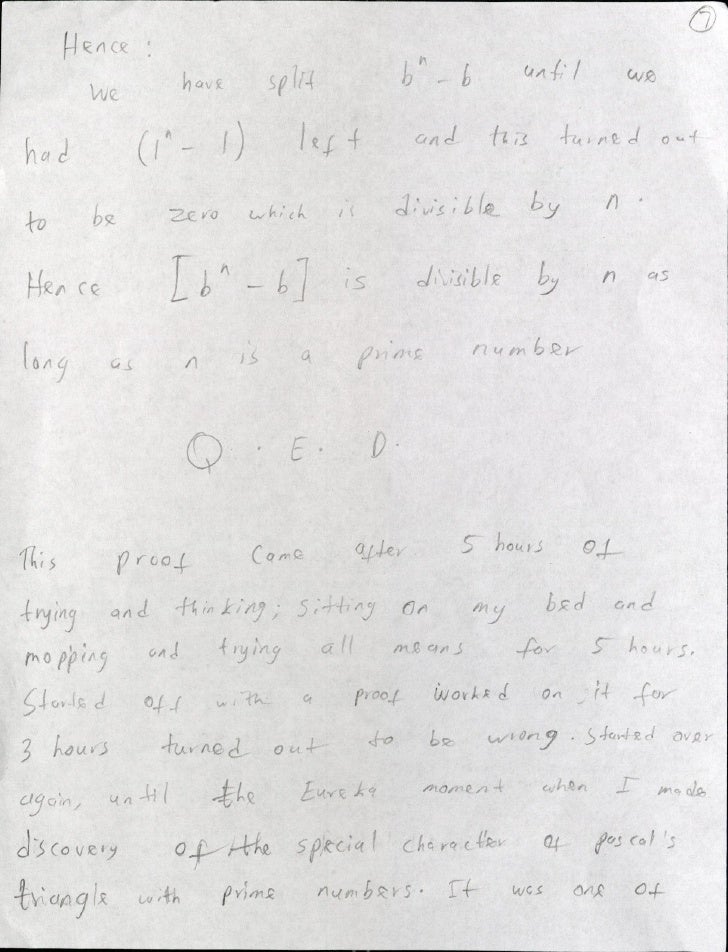 7
Hence :
We have split b^n - b until we
had (1^n - 1) left and this turned out
to be zero which is divisible by n.
Hence [b^n - b] is divisible by n as
long as n is a prime number
Q. E. D.
This proof came after 5 hours of
trying and thinking; sitting on my bed and
mopping and trying all means for 5 hours.
Started off with a proof worked on it for
3 hours turned out to be wrong. Started over
again, until the Eureka moment when I made
discovery of the special character of pascal's
triangle with prime numbers. It was one of